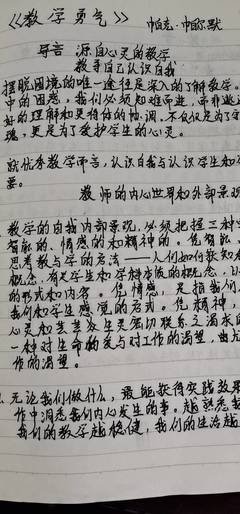 《教学勇气》 帕克·帕尔默
导言 源自心灵的教学
教导自己认识自我
摆脱困境的唯一途径是深入的了解教学。
中的困惑，我们必须知难而进，而非逃
好的理解和更得体的协调。不仅仅是为了守
魂，更是为了爱护学生的心灵。
就优秀教学而言，认识自我与认识学生和学
要。
教师的内心世界和外部景观
教学的自我内部景观，必须把握三种
智能的、情感的和精神的。凭智能，
思考教与学的方法——人们如何获知和
概念，有关学生和学科本质的概念，以
的形式和内容。凭情感，是指我们
我们和学生感觉的方式。凭精神，
心灵和芸芸众生灵密切联系之渴求的
一种对生命的爱与对工作的渴望，由
作的渴望。
无论我们做什么，最能获得实践效果
作中洞悉我们内心发生的事。越熟悉我
我们的教学越稳健，我们的生活越